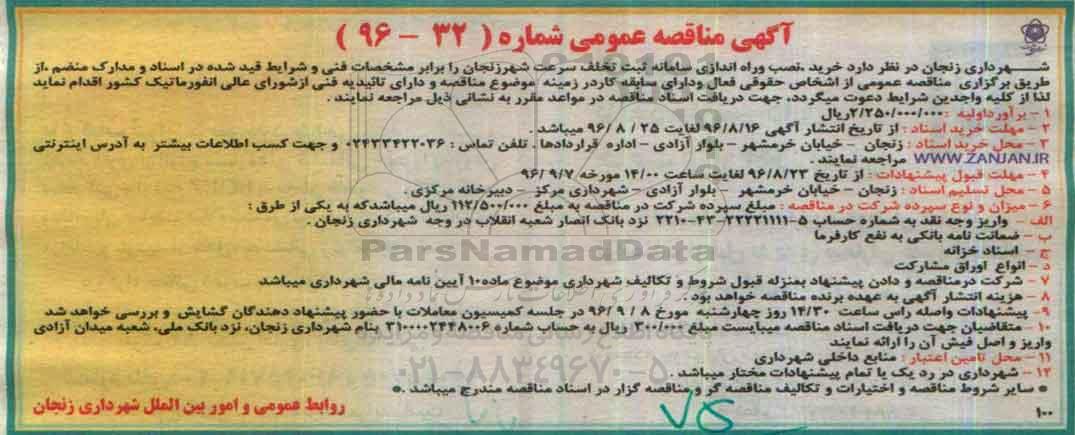 آگهی مناقصه عمومی شماره ( ۳۲ - ۹۶ )
شهرداری زنجان در نظر دارد خرید ،نصب وراه اندازی سامانه ثبت تخلف سرعت شهرزنجان را برابر مشخصات فنی و شرایط قید شده در اسناد و مدارک منضم ،از
طریق برگزاری مناقصه عمومی از اشخاص حقوقی فعال ودارای سابقه کاردر زمینه موضوع مناقصه و دارای تائیدیه فنی ازشورای عالی انفورماتیک کشور اقدام نماید
لذا از کلیه واجدین شرایط دعوت میگردد، جهت دریافت اسناد مناقصه در مواعد مقرر به نشانی ذیل مراجعه نمایند .
۱ - برآورداولیه :۲/۲۵۰/۰۰۰/۰۰۰ریال
۲ - مهلت خرید اسناد : از تاریخ انتشار آگهی ۹۶/۸/۱۶ لغایت ۲۵ / ۸ / ۹۶ میباشد .
۳ - محل خرید اسناد : زنجان - خیابان خرمشهر - بلوار آزادی - اداره قراردادها . تلفن تماس : ۰۲۴۳۳۴۲۲۰۳۶ و جهت کسب اطلاعات بیشتر به آدرس اینترنتی
WWW.ZANJAN.IR مراجعه نمایند .
۴ - مهلت قبول پیشنهادات : از تاریخ ۹۶/۸/۲۳ لغایت ساعت ۱۴/۰۰ مورخه ۹۶/۹/۷
۵ - محل تسلیم اسناد : زنجان - خیابان خرمشهر - بلوار آزادی - شهرداری مرکز - دبیرخانه مرکزی .
۶ - میزان و نوع سپرده شرکت در مناقصه : مبلغ سپرده شرکت در مناقصه به مبلغ ۱۱۲/۵۰۰/۰۰۰ ریال میباشدکه به یکی از طرق :
الف - واریز وجه نقد به شماره حساب ۵-۲۲۲۲۱۱۱۱-۴۳-۲۲۱۰ نزد بانک انصار شعبه انقلاب در وجه شهرداری زنجان .
ب - ضمانت نامه بانکی به نفع کارفرما
ج - اسناد خزانه
د - انواع اوراق مشارکت
۷ - شرکت درمناقصه و دادن پیشنهاد بمنزله قبول شروط و تکالیف شهرداری موضوع ماده۱۰ آیین نامه مالی شهرداری میباشد
۸ - هزینه انتشار آگهی به عهده برنده مناقصه خواهد بود .
۹ - پیشنهادات واصله راس ساعت ۱۴/۳۰ روز چهارشنبه مورخ ۸ / ۹ / ۹۶ در جلسه کمیسیون معاملات با حضور پیشنهاد دهندگان گشایش و بررسی خواهد شد
۱۰ - متقاضیان جهت دریافت اسناد مناقصه میبایست مبلغ ۳۰۰/۰۰۰ ریال به حساب شماره ۳۱۰۰۰۰۲۴۴۸۰۰۶ بنام شهرداری زنجان، نزد بانک ملی، شعبه میدان آزادی
واریز و اصل فیش آن را ارائه نمایند
۱۱ - محل تامین اعتبار : منابع داخلی شهرداری
۱۲ - شهرداری در رد یک یا تمام پیشنهادات مختار میباشد .
● سایر شروط مناقصه و اختیارات و تکالیف مناقصه گر و مناقصه گزار در اسناد مناقصه مندرج میباشد .●
روابط عمومی و امور بین الملل شهرداری زنجان
۱۰۰
ParsNamadData
۰۲۱-۸۸۳۴۹۶۷۰-۵